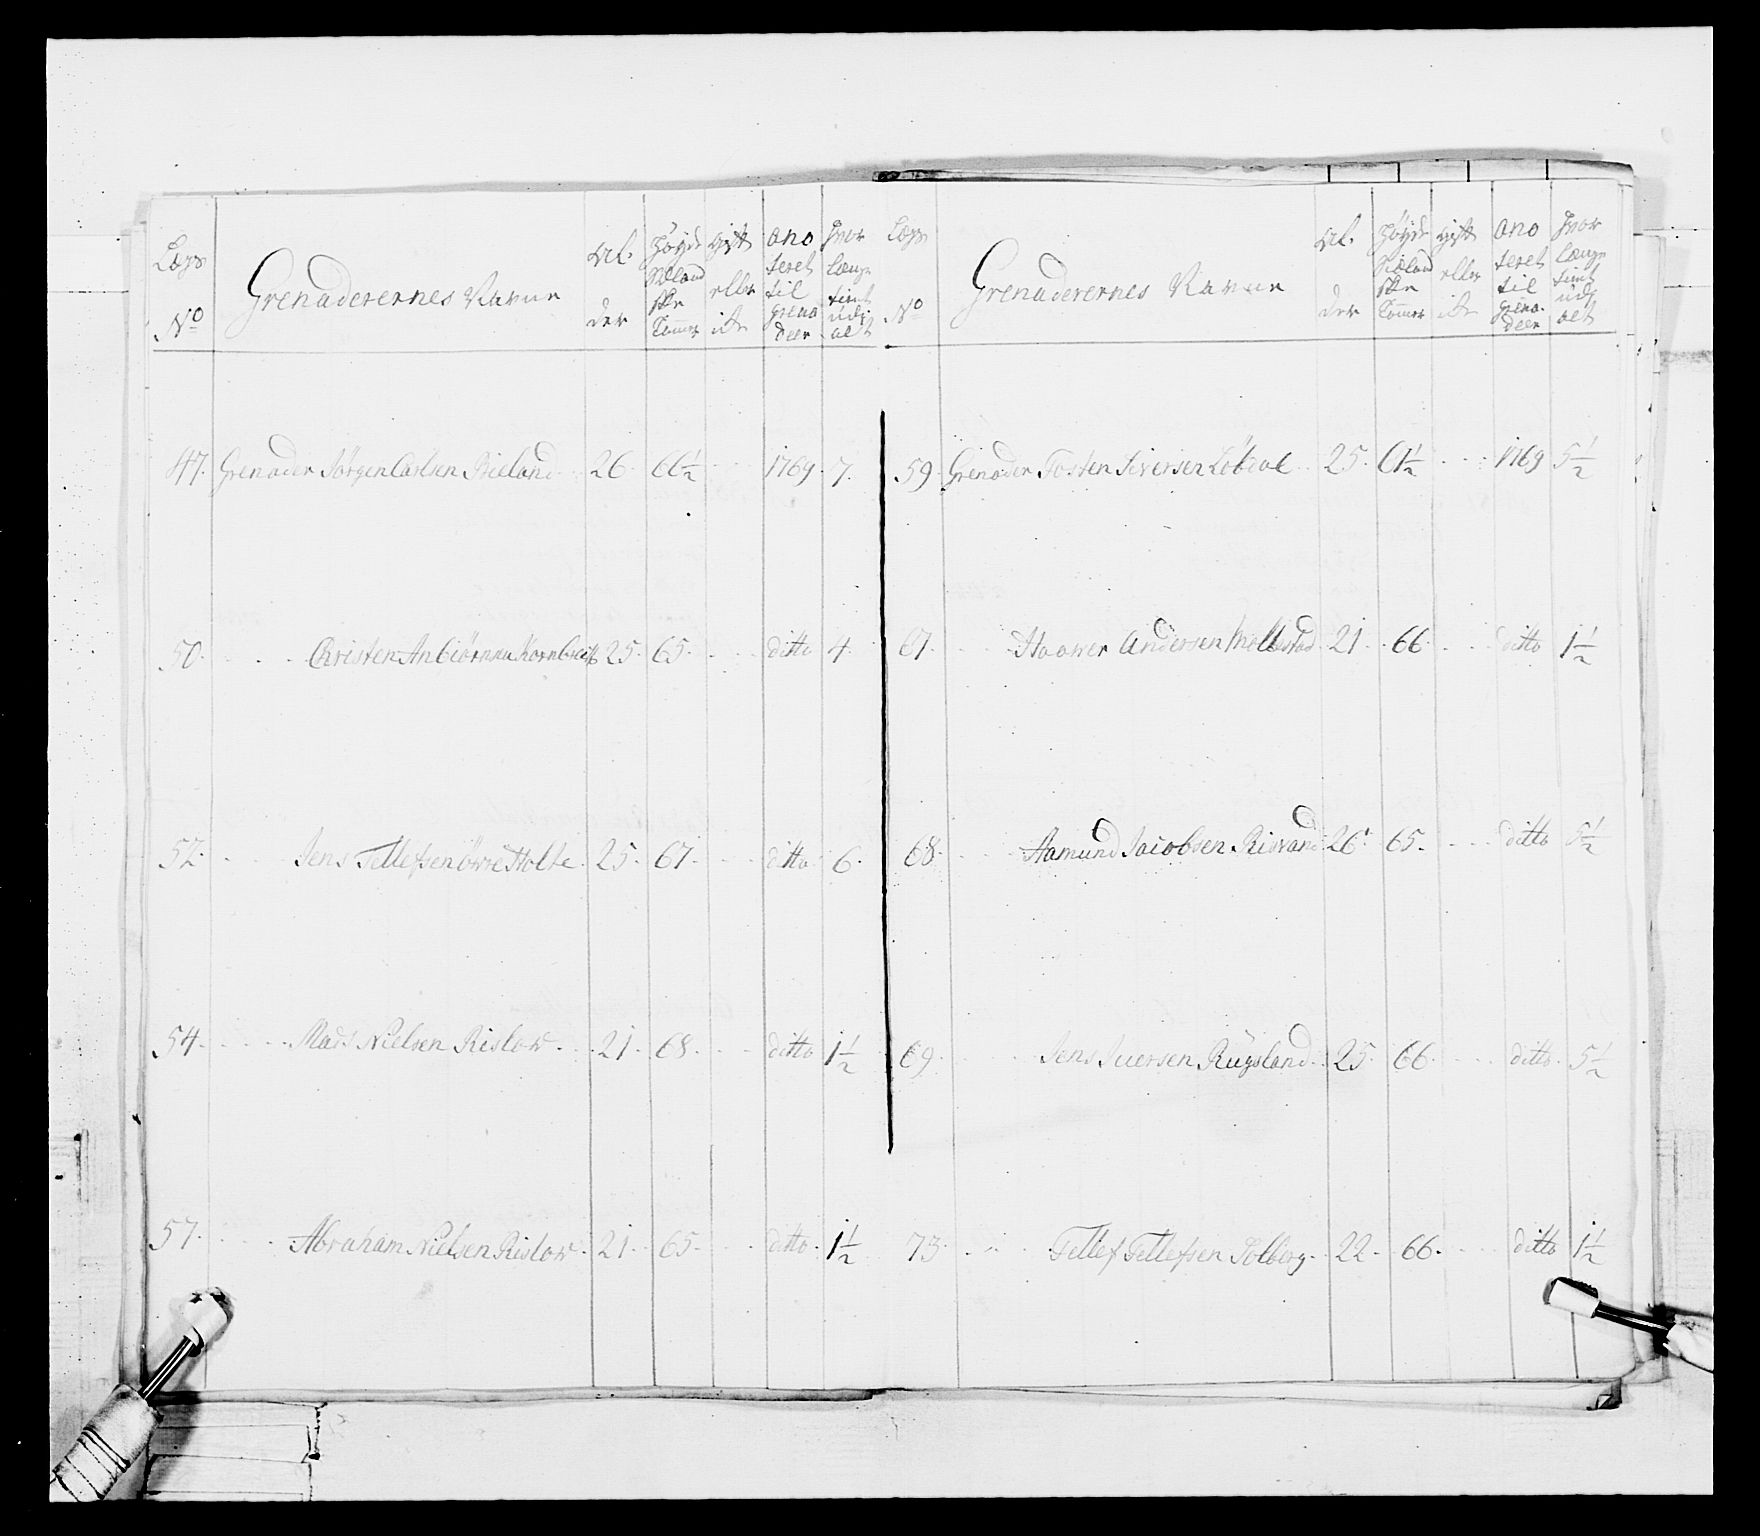 Lægs No
Grenaderernes Navne
Al- der
Høyde Siælandske Tommer
gift eller icke
anoteret til grenadeer
hvor længe tient udi alt
47. Grenader Jörgen Carlsen Bieland 26. 66½ 1769. 7.
50. Christen Anbiörnsen 25. 65. ditto 4.
52. Jens Tellefsen öwre Holte 25. 67. ditto 6.
54. Mads Nielsen Rislow. 21. 68. ditto 1½
57. Abraham Nielsen Rislow. 21. 65. ditto. 1½
Lægs No
Grenaderernes Navne
Al- der
Høyde Siælandske Tommer
gift eller icke
anoteret til grenadeer
hvor længe tient udi alt
59. Grenader Tosten Siversen Löbdal 25. 61½ 1769 5½
61. Haawer Andersen 21. 66. ditto 1½
68. Aamund Jacobsen Risvand 26. 65. ditto 5½
69. Jens Iuersen Rügsland. 25. 66. ditto. 5½
73. Tellef Tellefsen Solberg. 22. 66. ditto 1½